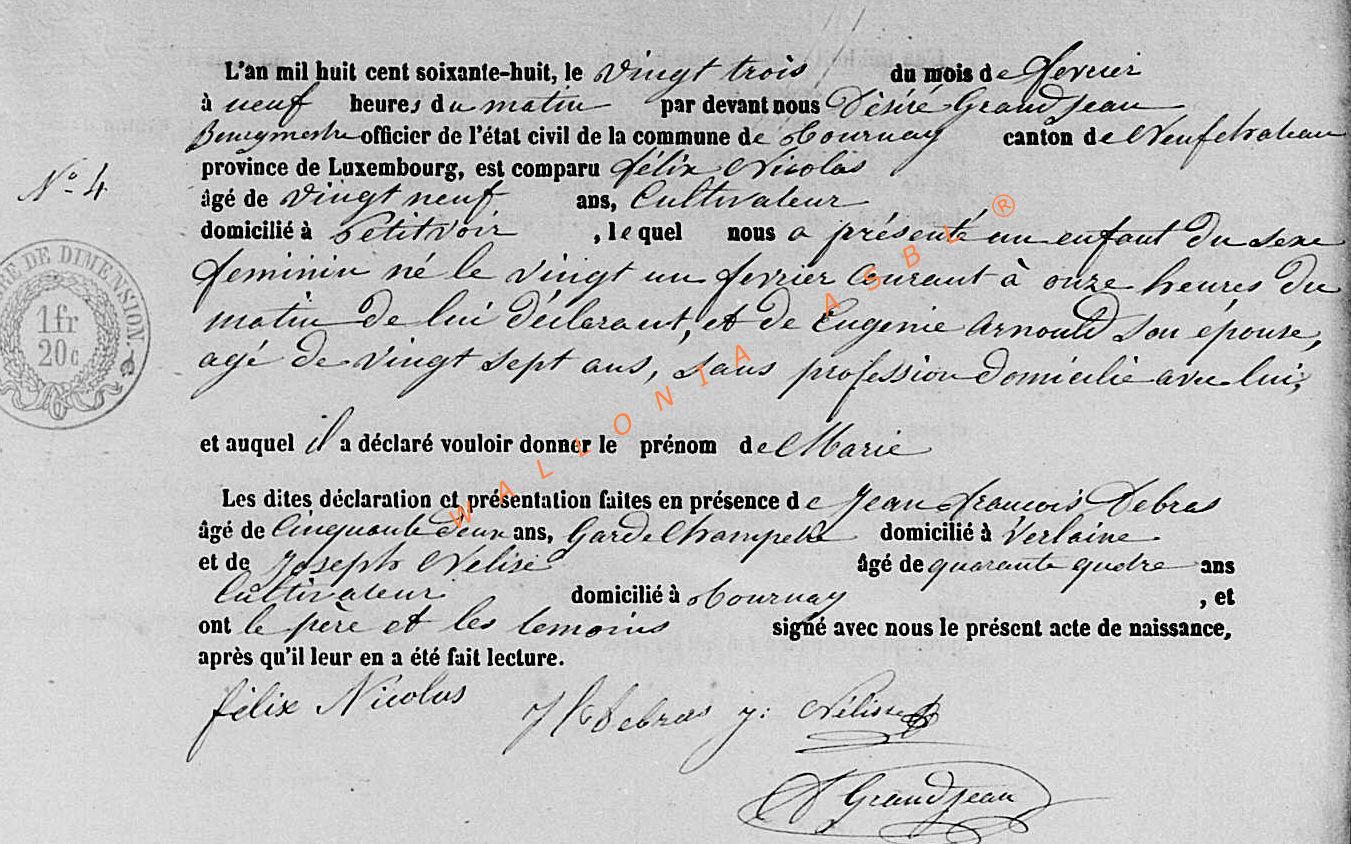 L'an mil huit cent soixante-huit, le vingt trois du mois de fevrier
à neuf heures du matin par devant nous Désiré Grandjean
Bourgmestre officier de l'état civil de la commune de Tournay canton de Neufchateau
province de Luxembourg, est comparu félix Nicolas
N° 4
âgé de vingt neuf ans, Cultivateur
domicilié à Petitvoir, lequel nous a présenté un enfant du sexe
feminin né le vingt un fevrier courant à onze heures du
matin de lui déclarant, et de Eugenie Arnould son épouse,
agé de vingt sept ans, sans profession domicilié avec lui,
RE DE DIMENSION
1 fr
20 c
et auquel il a déclaré vouloir donner le prénom de Marie
Les dites déclaration et présentation faites en présence de Jean françois Debras
âgé de Cinquante deux ans, Garde Champetre domicilié à Verlaine
et de Joseph Nelisse âgé de quarante quatre ans
Cultivateur domicilié à Tournay, et
ont le père et les temoins signé avec nous le présent acte de naissance,
après qu'il leur en a été fait lecture.
félix Nicolas Debras j: Nélisse
D Grandjean
WALLONIA ASBL ®